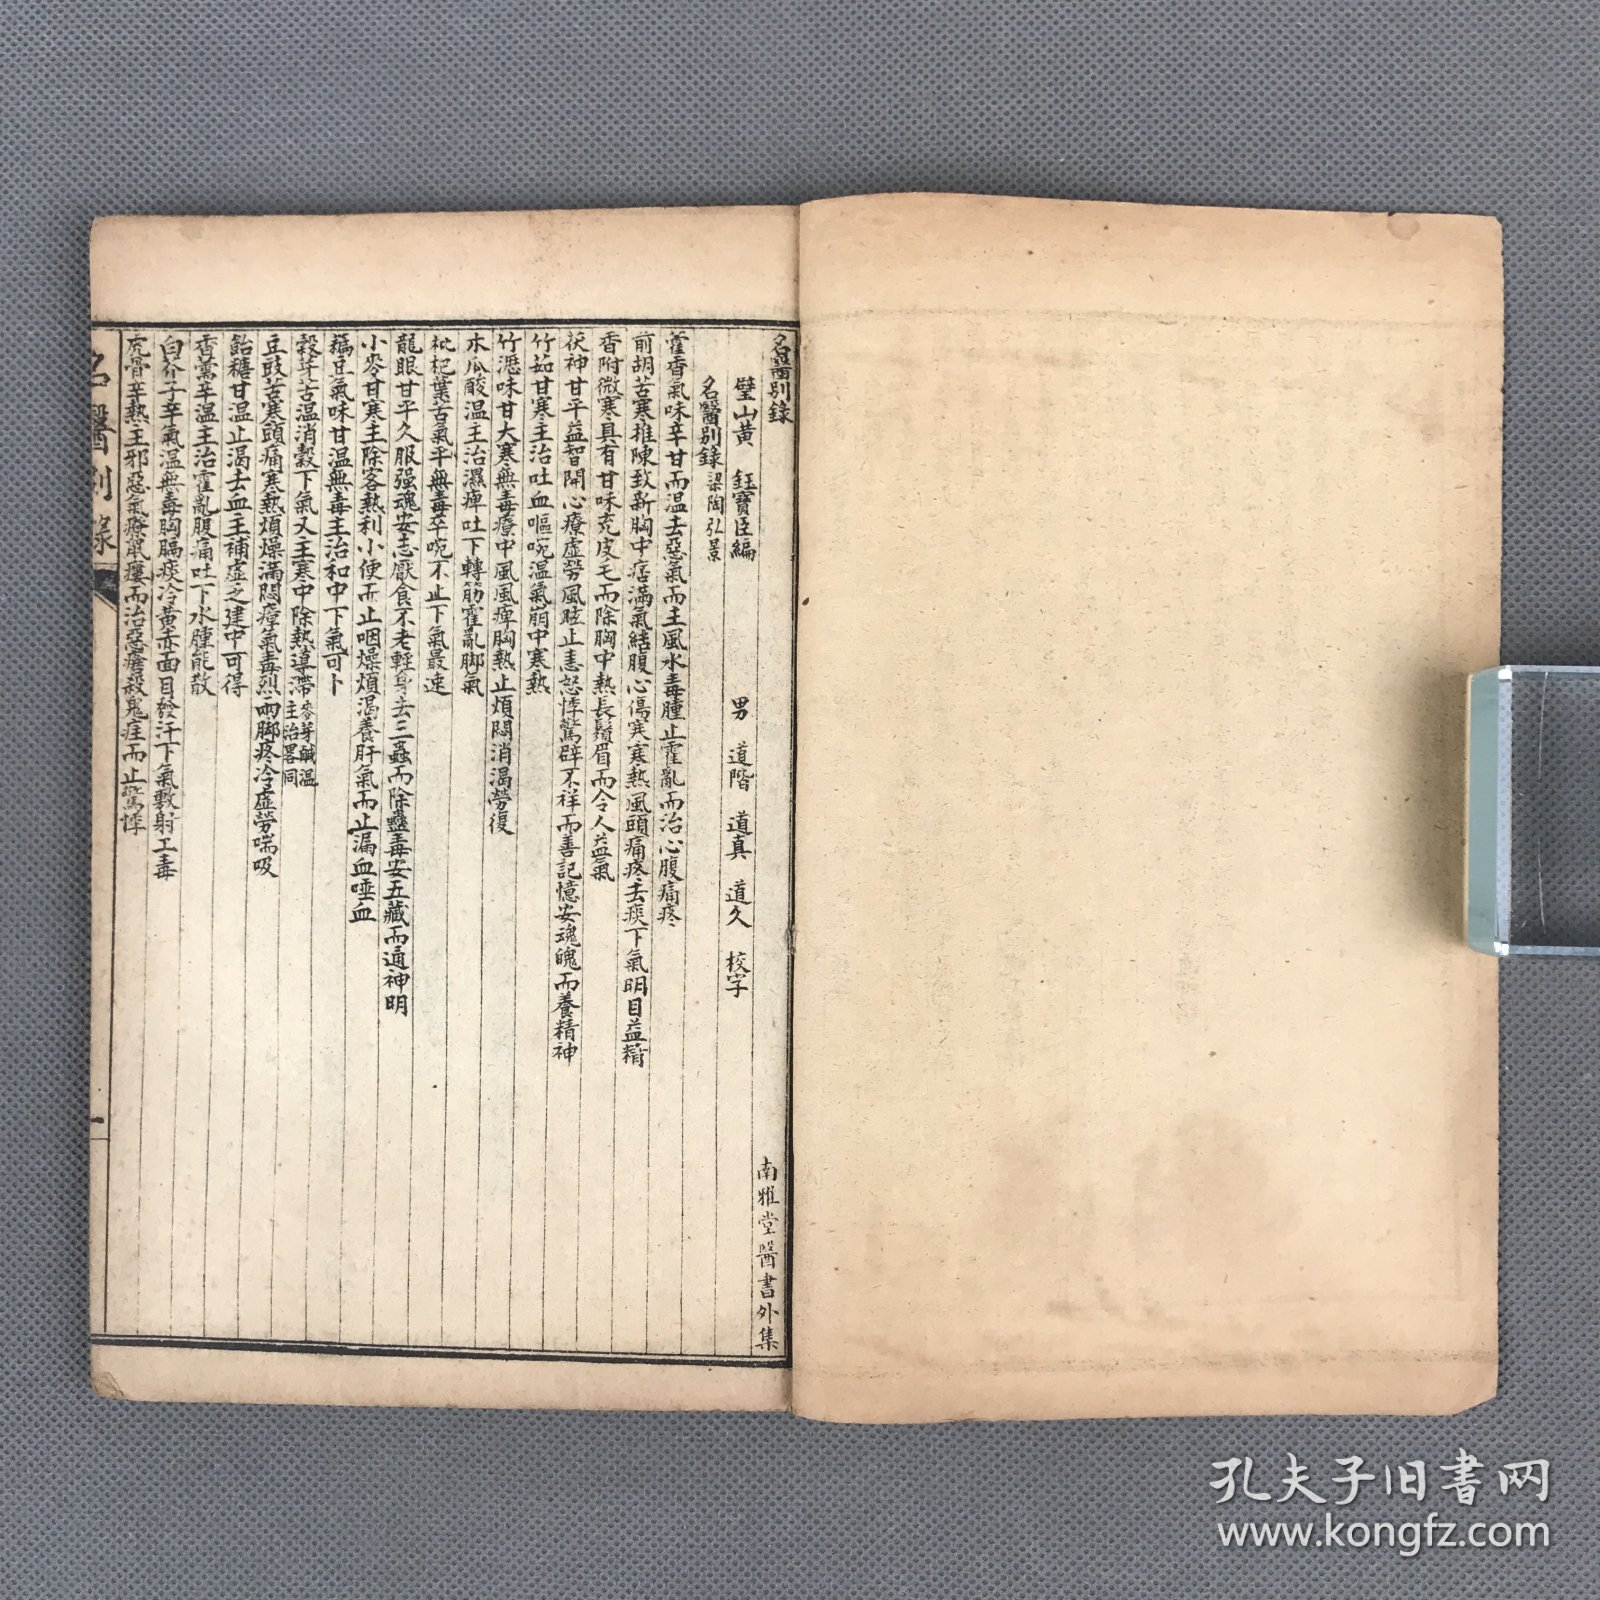 名醫別錄
南雅堂醫書外集
璧山黃　鈺寶臣編　男　道階　道真　道久　校字
名醫別錄梁陶弘景
藿香氣味辛甘而温去惡氣而主風水毒腫止霍亂而治心腹痛疼
前胡苦寒推陳致新胸中痞滿氣結腹心傷寒寒熱風頭痛疼去痰下氣明目益精
香附微寒具有甘味充皮毛而除胸中熱長鬚眉而令人益氣
茯神甘平益智開心療虛勞風眩止恚怒悸驚辟不祥而善記憶安魂魄而養精神
竹茹甘寒主治吐血嘔啘温氣崩中寒熱
竹瀝味甘大寒無毒療中風風痺胸熱止煩悶消渴勞復
木瓜酸温主治濕痺吐下轉筋霍亂脚氣
枇杷葉苦氣平無毒卒啘不止下氣最速
龍眼甘平久服强魂安志厭食不老輕身去三蟲而除蠱毒安五藏而通神明
小麥甘寒主除客熱利小便而止咽燥煩渴養肝氣而止漏血唾血
稨豆氣味甘温無毒主治和中下氣可卜
穀芽苦温消穀下氣又主寒中除熱導滯麥芽鹹温主治畧同
豆豉苦寒頭痛寒熱煩燥滿悶瘴氣毒烈兩脚疼冷虛勞喘吸
飴糖甘温止渴去血主補虛乏建中可得
香薷辛温主治霍亂腹痛吐下水腫能散
白芥子辛氣温無毒胸膈痰冷黃赤面目發汗下氣敷射工毒
虎骨辛熱主邪惡氣療鼠瘻而治惡瘡殺鬼疰而止驚悸
名醫別錄
一
孔夫子旧书网
www.kongfz.com